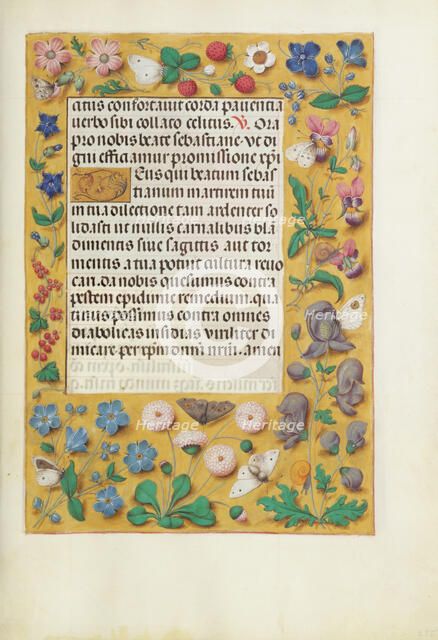 atus confortauit corda pauentia
uerbo sibi collato celitus. V. Ora
pro nobis beate sebastiane. vt di
gni efficiamur promissione xpi
Deus qui beatum sebas
tianum martirem tuū
in tua dilectione tam ardenter so
lidasti ut nullis carnalibus bla
dimentis siue sagittis aut tor
mentis a tua potuit cultura reuo
cari. da nobis quesumus contra
pestem epidimie remedium. qua
tinus possimus contra omnes
diabolicas insidias viriliter di
micare. per xpm dominū nrm. amen